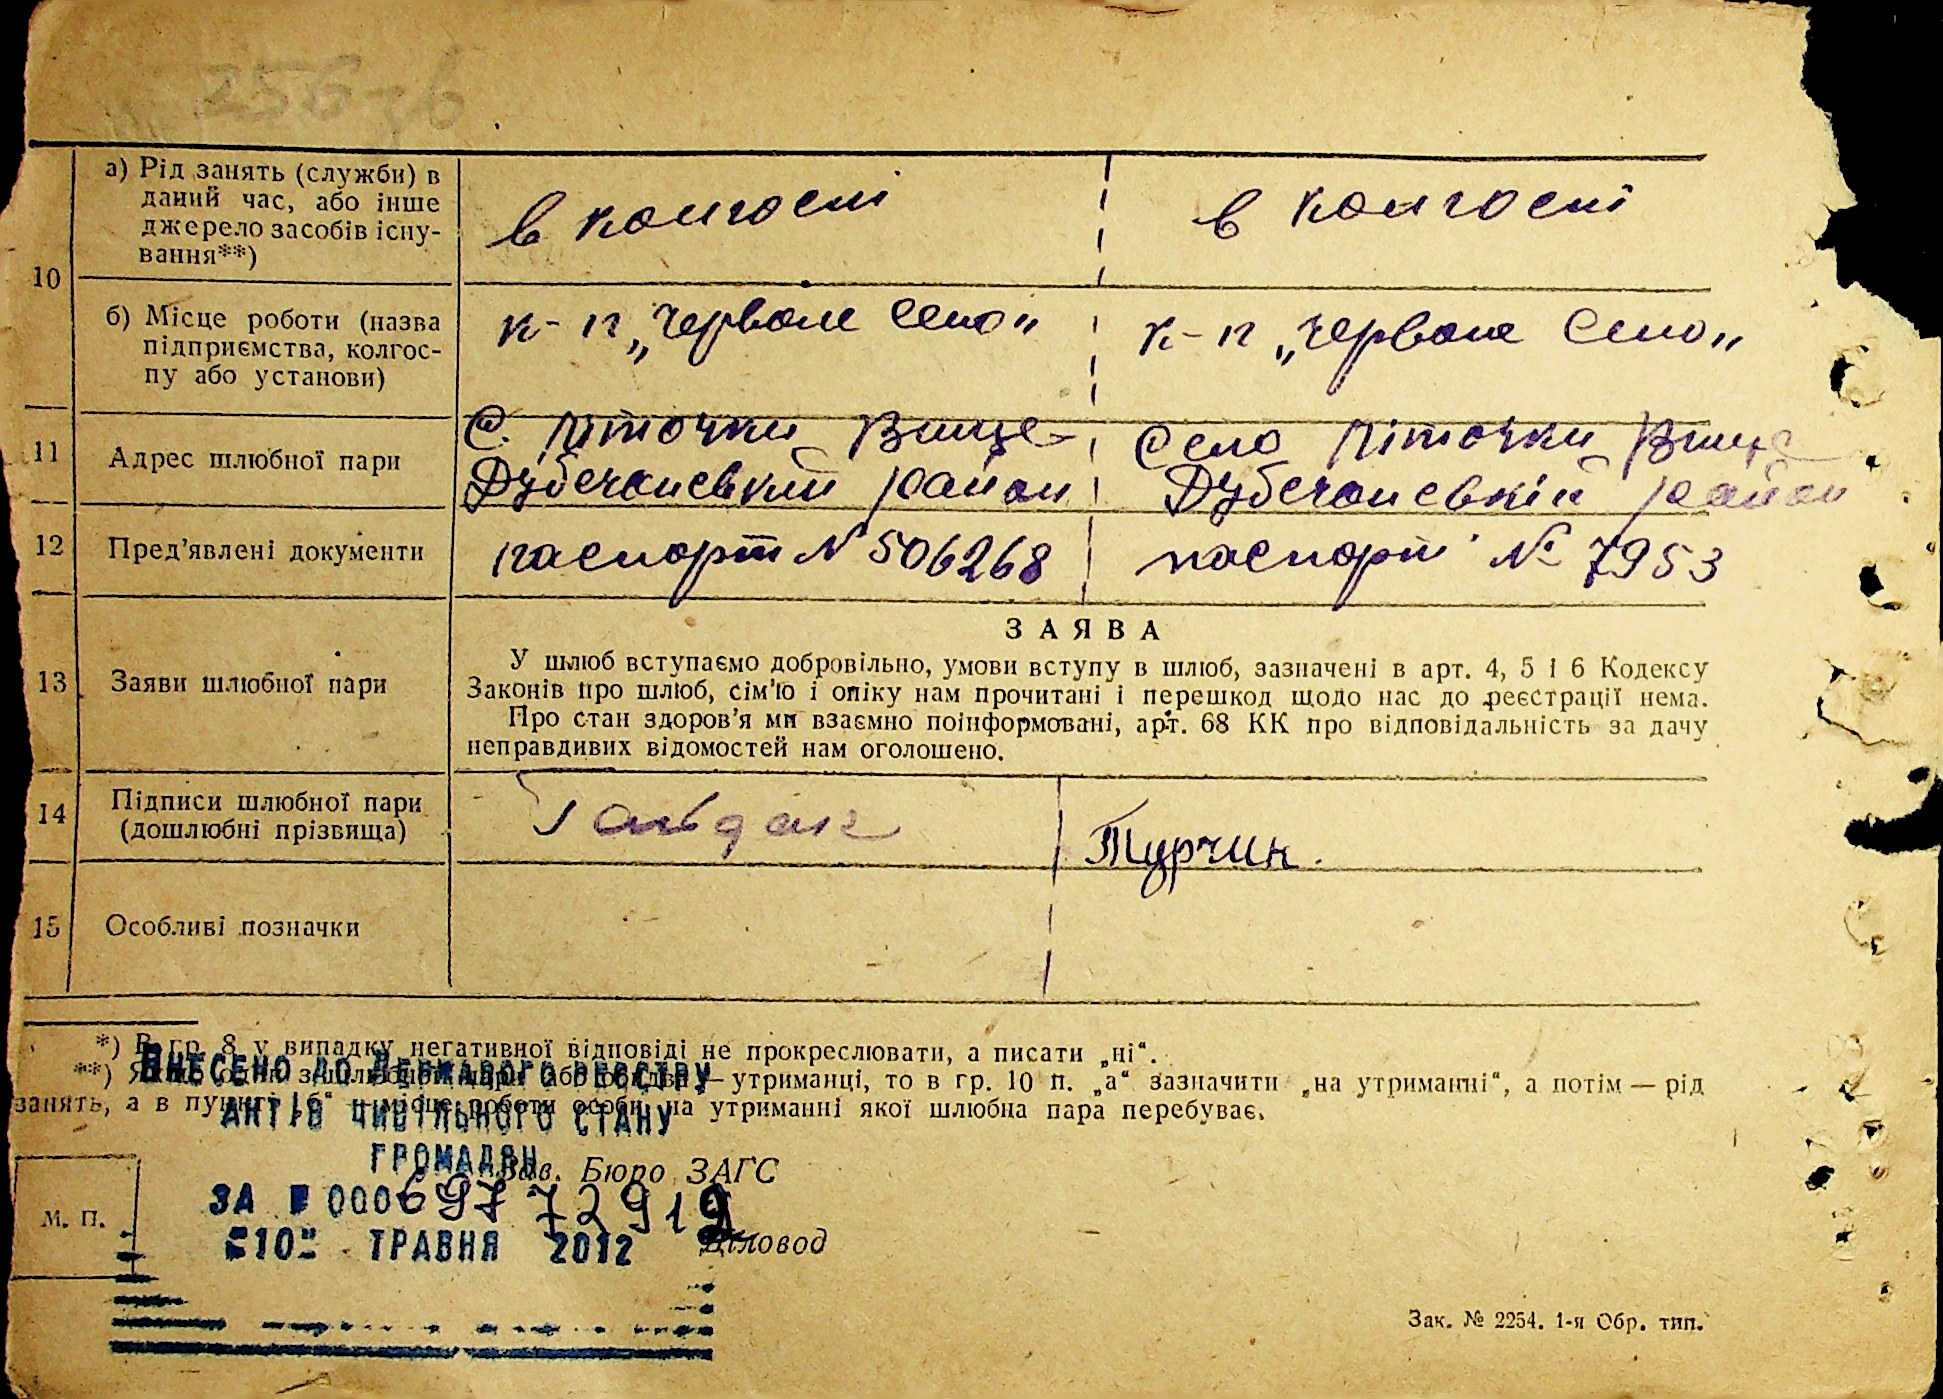 10
а) Рід занять (служби) в
даний час, або інше
джерело засобів існу-
вання**)
в колгоспі
в колгоспі
б) Місце роботи (назва
підприємства, колгос-
пу або установи)
к-п „Червоне село"
к-п „Червоне село"
11
Адрес шлюбної пари
С. Літочки Вище-
Дубечанський район
Село Літочки Вище
Дубечанській район
12
Пред'явлені документи
паспорт № 506268
паспорт № 7953
13
Заяви шлюбної пари
ЗАЯВА
У шлюб вступаємо добровільно, умови вступу в шлюб, зазначені в арт. 4, 5 і 6 Кодексу
Законів про шлюб, сім'ю і опіку нам прочитані і перешкод щодо нас до реєстрації нема.
Про стан здоров'я ми взаємно поінформовані, арт. 68 КК про відповідальність за дачу
неправдивих відомостей нам оголошено.
14
Підписи шлюбної пари
(дошлюбні прізвища)
Турчин.
15
Особливі позначки
*) В гр. 8 у випадку негативної відповіді не прокреслювати, а писати „ні".
**) — утриманці, то в гр. 10 п. „а" зазначити „на утриманні", а потім — рід
занять, а в пункті „б" — місце роботи особи, на утриманні якої шлюбна пара перебуває.
Внесено до Державого реєстру
актів цивільного стану
громадян
Зав. Бюро ЗАГС
за № 00069772919
"10" травня 2012
Діловод
М. П.
Зак. № 2254. 1-я Обр. тип.